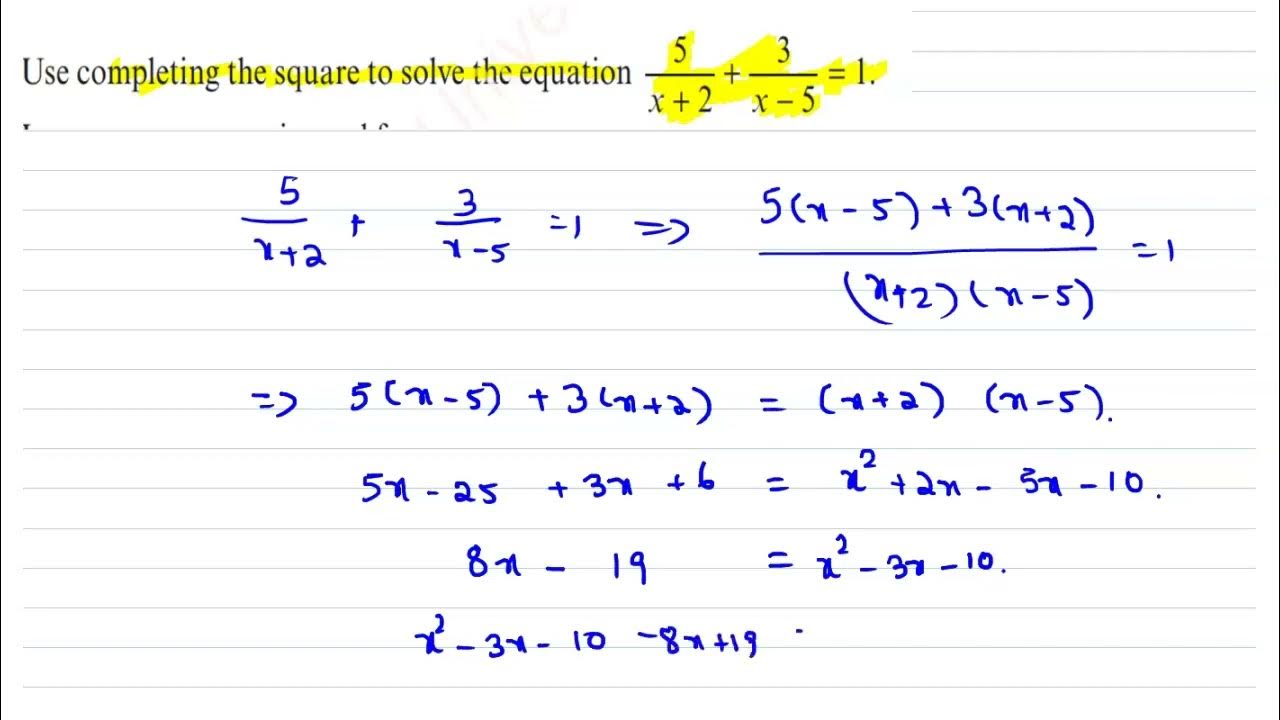 Use completing the square to solve the equation 5/(x + 2) + 3/(x − 5) = 1.
5/(x+2) + 3/(x−5) = 1 => (5(x−5) + 3(x+2))/((x+2)(x−5)) = 1
=> 5(x−5) + 3(x+2) = (x+2) (x−5).
5x − 25 + 3x + 6 = x² + 2x − 5x − 10.
8x − 19 = x² − 3x − 10.
x² − 3x − 10 − 8x + 19